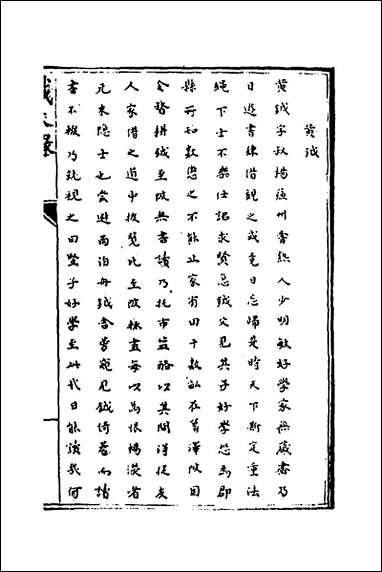 黄鉞
黄鉞字叔揚蘇州常熟人少明敏好學家無藏書乃
日遊書肆借觀之或竟日忘歸是時天下新定重法
繩下士不樂仕詔求賢急鉞父見其子好學恐為郡
縣所知數懲之不能止家有田十數畝在葛澤陂因
令督耕鉞至陂無書讀乃托市鹽酪以其間得從友
人家借之道中披覽比至陂輒盡每以為恨楊濙者
元末隱士也嘗避雨泊舟鉞舍旁窺見鉞倚而讀
書不輟乃就視之曰豎子好學至此我日能讀幾何
識大錄